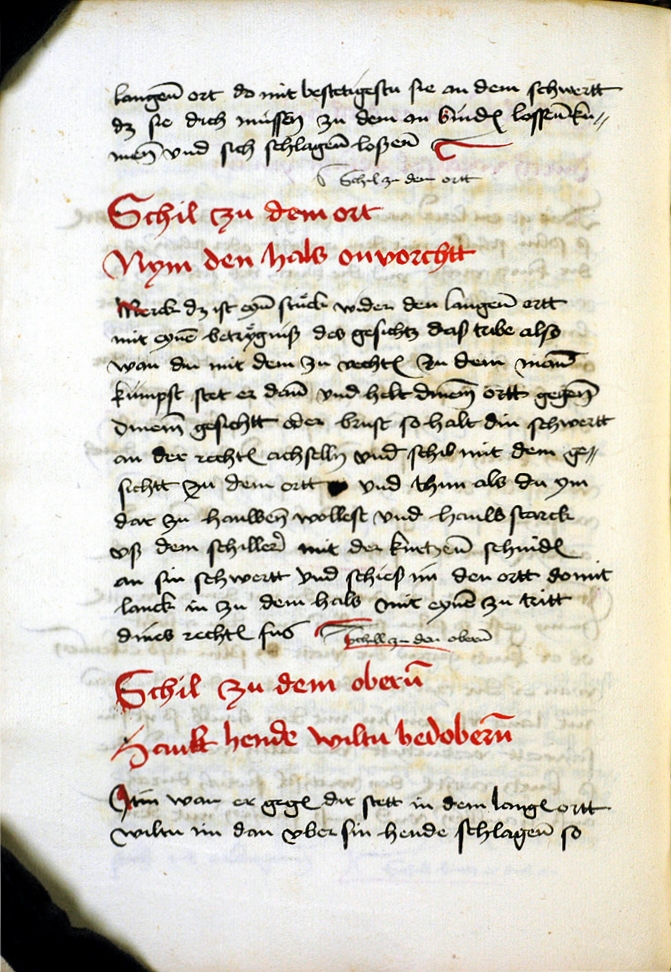 langenn ort do mit bestetigestu sie an dem schwertt
dz sie dich mussen zu dem an bind lossen ku//
men vnd sich schlagen loßen
Schil zu dem ortt
Schil czu dem ort
Nym den hals onvorchtt
Merck dz ist eyn stuck wider den langen ortt
mit eyne betrygniß des gesichtz das tribe also
wan du mit dem zu vechten zu dem man
kumpst stet er dan vnd helt dinem ortt gegen
dinem gesichtt oder brust so halt din schwertt
an der rechten achselln vnd schil mit dem ge//
sichtt zu dem ortt vnd thun als du ym
dar zu hauwen wollest vnd hauld starck
vß dem schiller mit der kurtzen schnid
an sin schwertt vnd schieß im den ortt do mit
lanck in zu dem hals mit eyne zu tritt
dines rechten fus
schill zu den obern
Schil zu dem obern
Hautt hende wiltu bedobern
Itm wan er gegen dir stett in dem langen ortt
wiltu im dan vber sin hende schlagen so